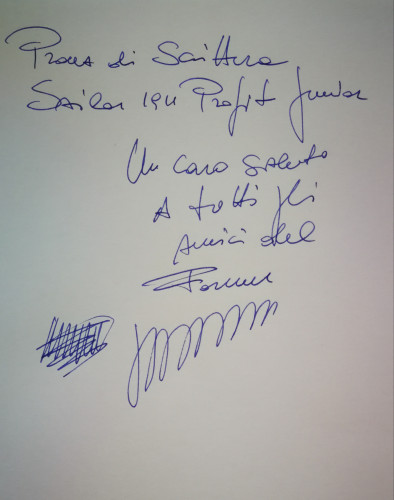 Prova di Scrittura
Sailor 1911 Profit Junior
Un caro saluto
A tutti gli
Amici del
Forum